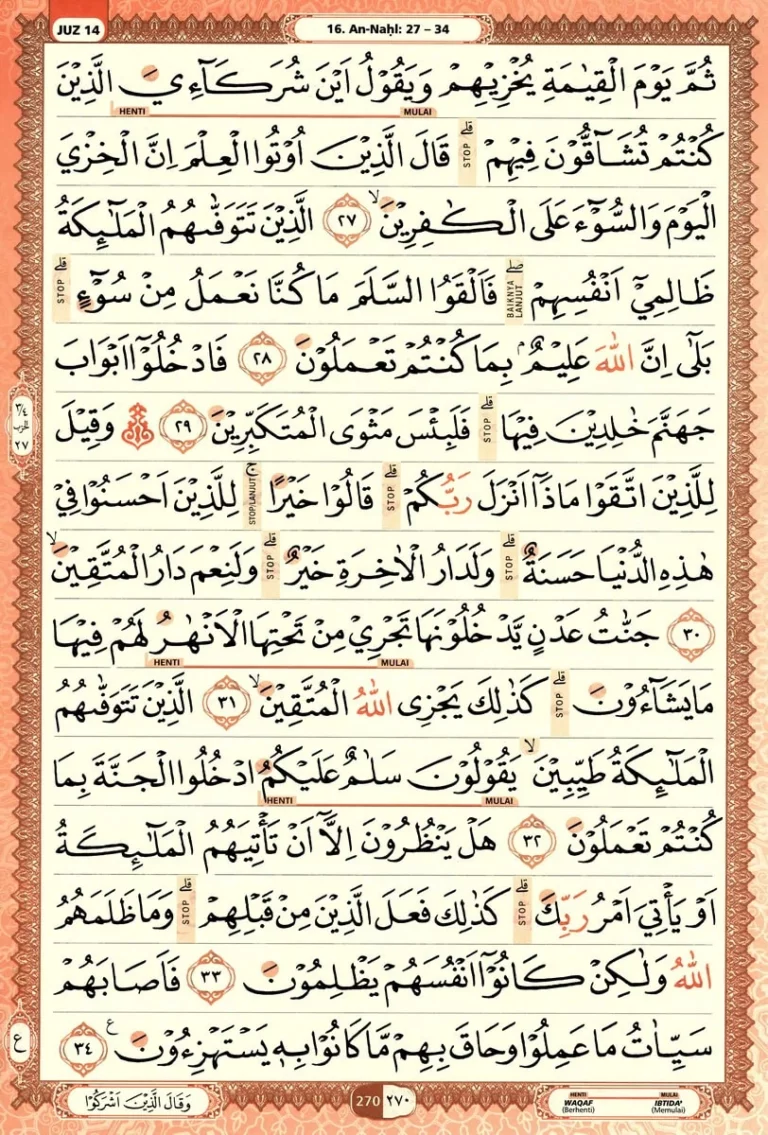 JUZ 14
16. An-Naḥl: 27 – 34
ثُمَّ يَوْمَ الْقِيٰمَةِ يُخْزِيْهِمْ وَيَقُوْلُ اَيْنَ شُرَكَاۤءِيَ الَّذِيْنَ
HENTI MULAI
كُنْتُمْ تُشَاۤقُّوْنَ فِيْهِمْ ۗ قَالَ الَّذِيْنَ اُوْتُوا الْعِلْمَ اِنَّ الْخِزْيَ
STOP
الْيَوْمَ وَالسُّوْۤءَ عَلَى الْكٰفِرِيْنَۙ ٢٧ الَّذِيْنَ تَتَوَفّٰىهُمُ الْمَلٰۤىِٕكَةُ
ظَالِمِيْٓ اَنْفُسِهِمْ ۖ فَاَلْقَوُا السَّلَمَ مَا كُنَّا نَعْمَلُ مِنْ سُوْۤءٍ ۗ
BAIKNYA LANJUT STOP
بَلٰٓى اِنَّ اللّٰهَ عَلِيْمٌۢ بِمَا كُنْتُمْ تَعْمَلُوْنَ ٢٨ فَادْخُلُوْٓا اَبْوَابَ
جَهَنَّمَ خٰلِدِيْنَ فِيْهَا ۗ فَلَبِئْسَ مَثْوَى الْمُتَكَبِّرِيْنَ ٢٩ ۞ وَقِيْلَ
STOP
٣/٤ الحزب ٢٧
لِلَّذِيْنَ اتَّقَوْا مَاذَآ اَنْزَلَ رَبُّكُمْ ۗ قَالُوْا خَيْرًا ۚ لِلَّذِيْنَ اَحْسَنُوْا فِيْ
STOP STOP/LANJUT
هٰذِهِ الدُّنْيَا حَسَنَةٌ ۗ وَلَدَارُ الْاٰخِرَةِ خَيْرٌ ۗ وَلَنِعْمَ دَارُ الْمُتَّقِيْنَۙ
STOP STOP
٣٠ جَنّٰتُ عَدْنٍ يَّدْخُلُوْنَهَا تَجْرِيْ مِنْ تَحْتِهَا الْاَنْهٰرُ لَهُمْ فِيْهَا
HENTI MULAI
مَا يَشَاۤءُوْنَ ۗ كَذٰلِكَ يَجْزِى اللّٰهُ الْمُتَّقِيْنَۙ ٣١ الَّذِيْنَ تَتَوَفّٰىهُمُ
STOP
الْمَلٰۤىِٕكَةُ طَيِّبِيْنَ ۙ يَقُوْلُوْنَ سَلٰمٌ عَلَيْكُمُ ادْخُلُوا الْجَنَّةَ بِمَا
HENTI MULAI
كُنْتُمْ تَعْمَلُوْنَ ٣٢ هَلْ يَنْظُرُوْنَ اِلَّآ اَنْ تَأْتِيَهُمُ الْمَلٰۤىِٕكَةُ
اَوْ يَأْتِيَ اَمْرُ رَبِّكَ ۗ كَذٰلِكَ فَعَلَ الَّذِيْنَ مِنْ قَبْلِهِمْ ۗ وَمَا ظَلَمَهُمُ
STOP STOP
اللّٰهُ وَلٰكِنْ كَانُوْٓا اَنْفُسَهُمْ يَظْلِمُوْنَ ٣٣ فَاَصَابَهُمْ
سَيِّاٰتُ مَا عَمِلُوْا وَحَاقَ بِهِمْ مَّا كَانُوْا بِهٖ يَسْتَهْزِءُوْنَ ࣖ ٣٤
ع
وَقَالَ الَّذِيْنَ اَشْرَكُوْا
270 ٢٧٠
HENTI MULAI
WAQAF IBTIDA'
(Berhenti) (Memulai)